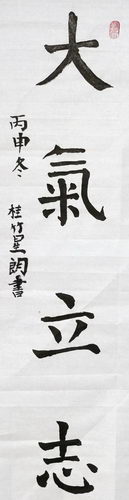 大氣立志
丙申冬 桂竹星朗書